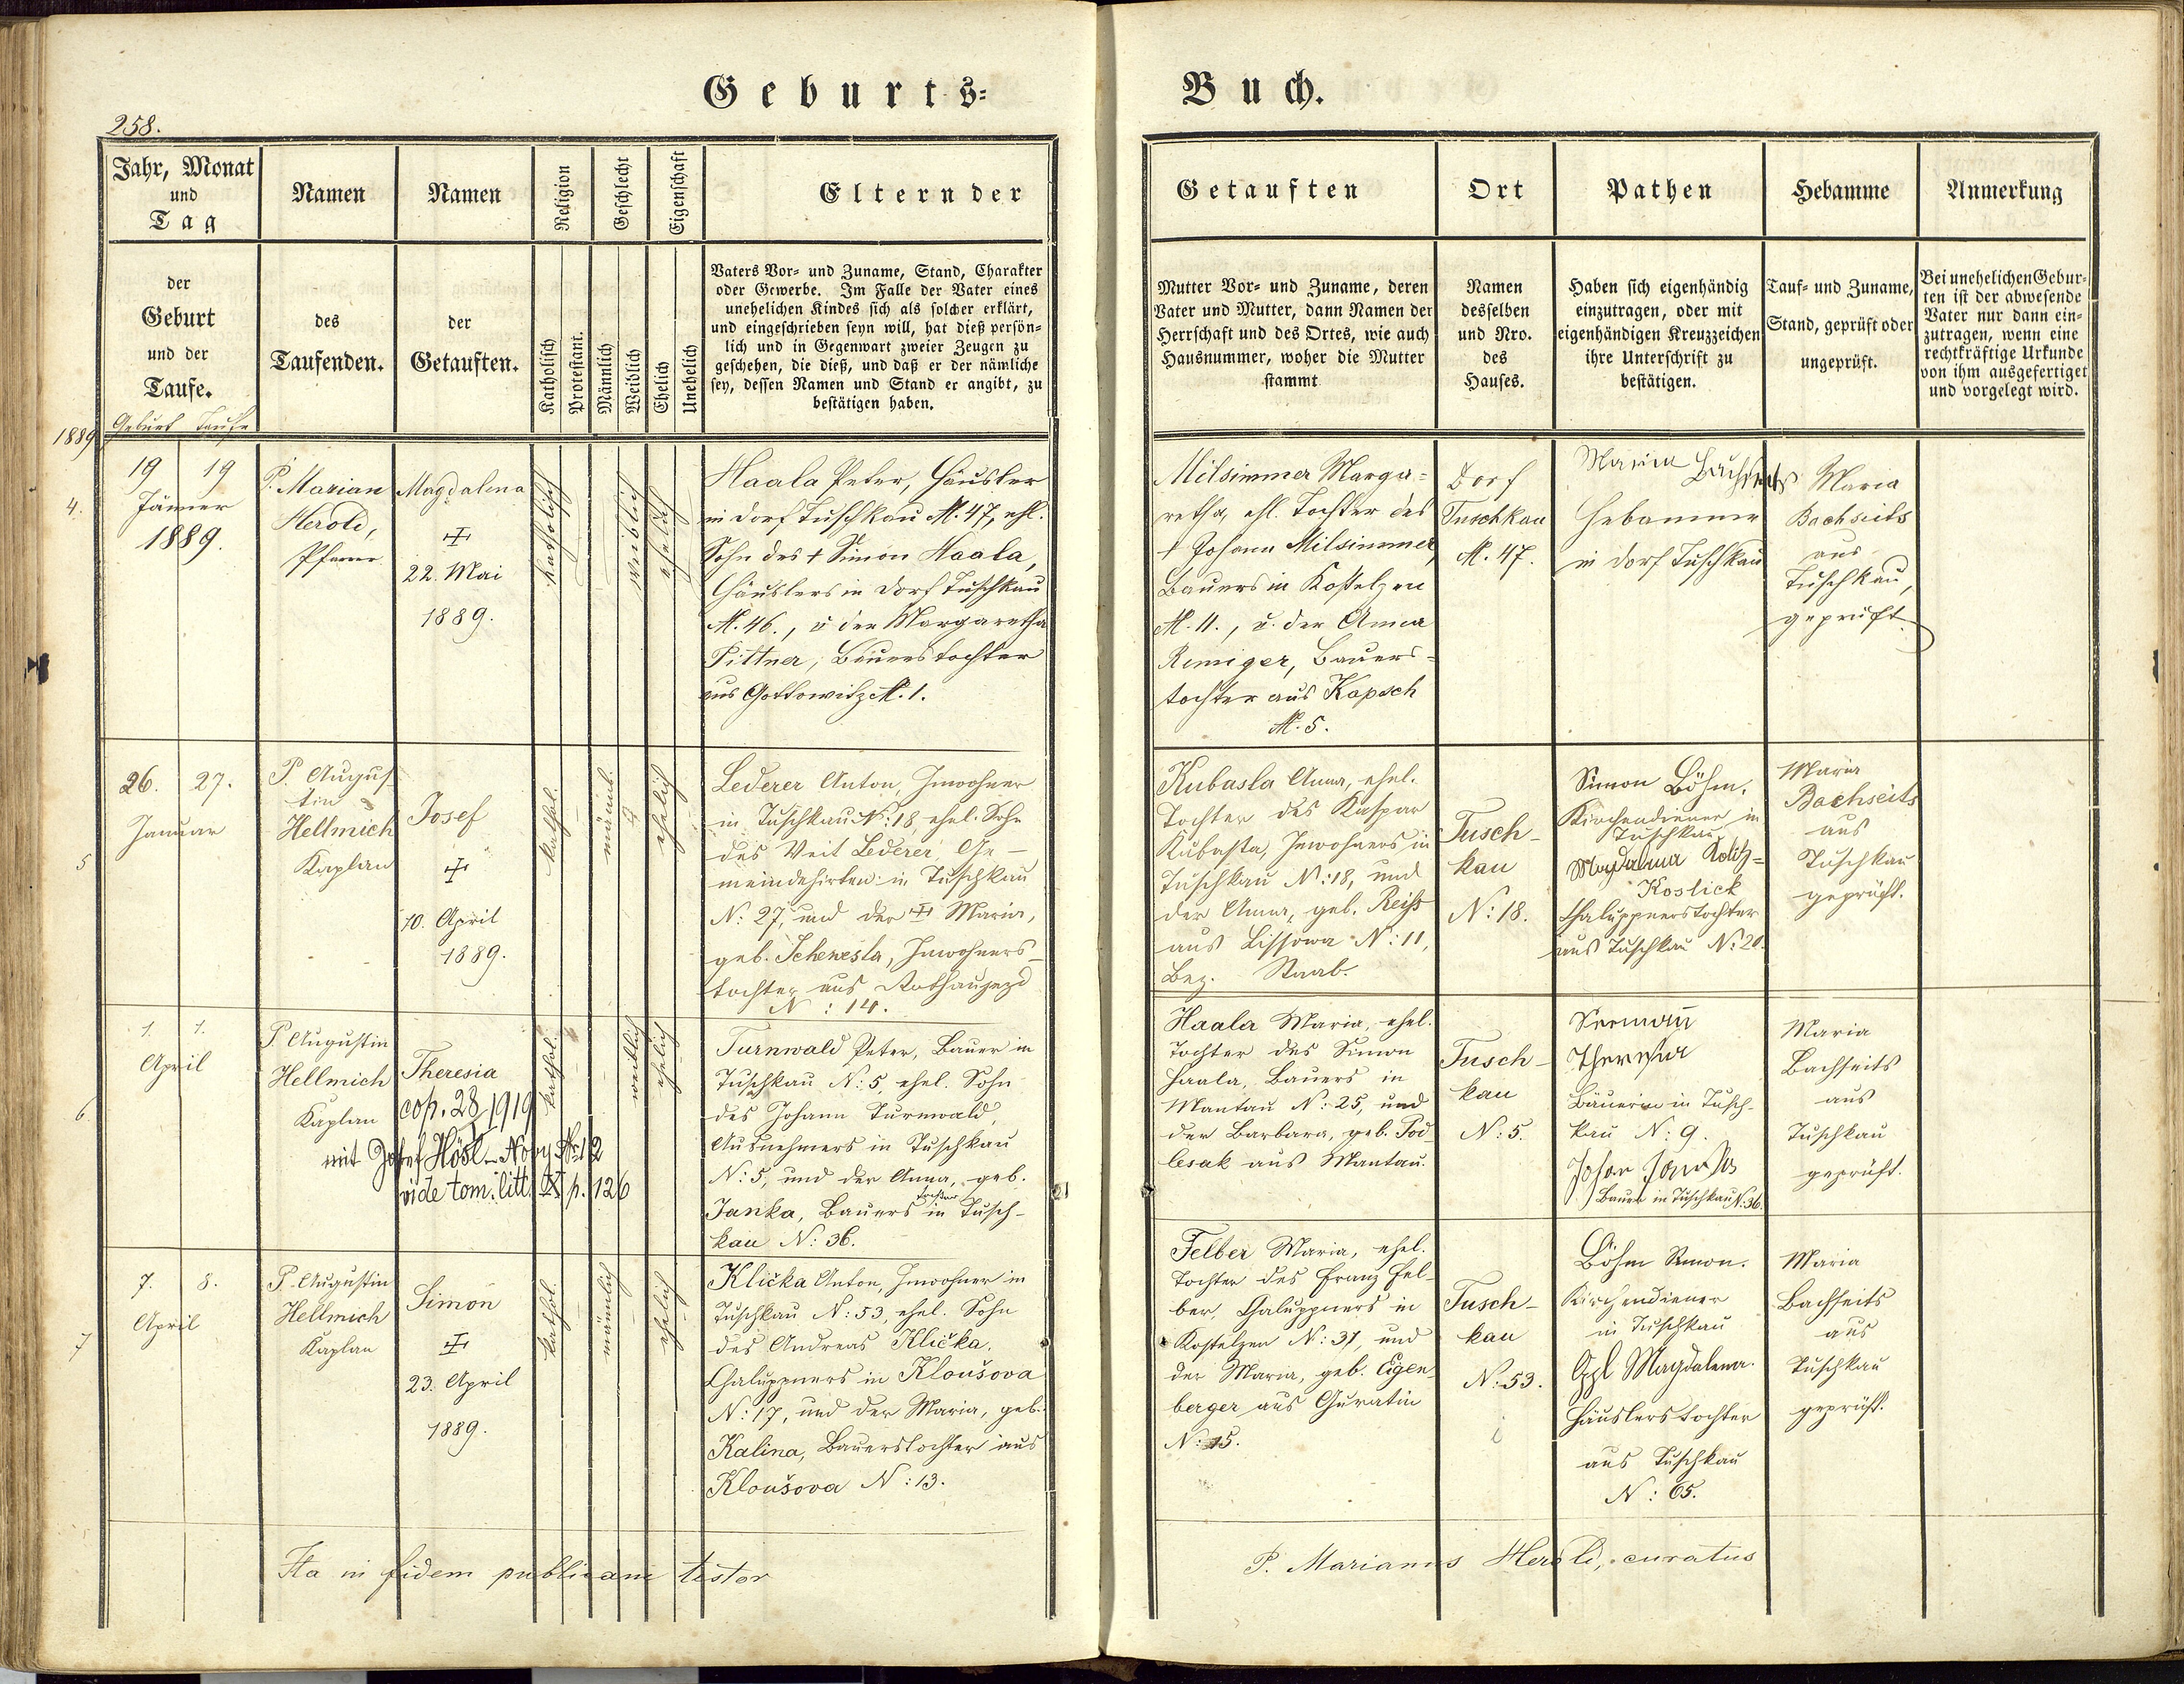 Geburts-
Buch.
258.
Jahr, Monat
und
Tag
Namen
Namen
Religion
Geschlecht
Eigenschaft
Eltern der
Getauften
Ort
Pathen
Hebamme
Anmerkung
der
Geburt
und der
Taufe.
des
Taufenden.
der
Getauften.
Katholisch
Protestant.
Männlich
Weiblich
Ehelich
Unehelich
Vaters Vor- und Zuname, Stand, Charakter
oder Gewerbe. Im Falle der Vater eines
unehelichen Kindes sich als solcher erklärt,
und eingeschrieben seyn will, hat dieß persön-
lich und in Gegenwart zweier Zeugen zu
geschehen, die dieß, und daß er der nämliche
sey, dessen Namen und Stand er angibt, zu
bestätigen haben.
Mutter Vor- und Zuname, deren
Vater und Mutter, dann Namen der
Herrschaft und des Ortes, wie auch
Hausnummer, woher die Mutter
stammt
Namen
desselben
und Nro.
des
Hauses.
Haben sich eigenhändig
einzutragen, oder mit
eigenhändigen Kreuzzeichen
ihre Unterschrift zu
bestätigen.
Tauf- und Zuname,
Stand, geprüft oder
ungeprüft.
Bei unehelichen Gebur-
ten ist der abwesende
Vater nur dann ein-
zutragen, wenn eine
rechtkräftige Urkunde
von ihm ausgefertiget
und vorgelegt wird.
Geburt Taufe
1889
4.
19 19
Jänner
1889.
P. Marian
Herold,
Pfarrer
Magdalena
22. Mai
1889.
katholisch
weiblich
ehelich
Haala Peter, Häusler
in Dorf Tuschkau N. 47, ehl.
Sohn des † Simon Haala,
Häuslers in Dorf Tuschkau
N. 46., u der Margaretha
Pittner, Bauerstochter
aus Gottowitz N. 1.
Milsimmer Marga-
retha, ehl. Tochter des
† Johann Milsimmer,
Bauers in Kostelzen
N. 11., u. der Anna
Remiger, Bauers-
tochter aus Kapsch
N. 5.
Dorf
Tuschkau
N. 47.
Maria Bachseits
Hebamme
in Dorf Tuschkau
Maria
Bachseits
aus
Tuschkau,
geprüft
5
26. 27.
Januar
P. Augus-
tin
Hellmich
Kaplan
Josef
10. April
1889.
kathol.
männl.
ehelich
Lederer Anton, Inwohner
in Tuschkau N: 18, ehel. Sohn
des Veit Lederer, Ge-
meindehirten in Tuschkau
N: 27, und der Maria,
geb. Schewesta, Inwohners-
tochter aus Rothaujezd
N: 14.
Kubasta Anna, ehel.
Tochter des Kaspar
Kubasta, Inwohners in
Tuschkau N: 18, und
der Anna, geb. Reiss
aus Lissowa N: 11,
Bez. Staab.
Tusch-
kau
N: 18.
Simon Böhm.
Kirchendiener in
Tuschkau
Magdalena
Koslick
Chaluppnerstochter
aus Tuschkau N: 20.
Maria
Bachseits
aus
Tuschkau
geprüft.
6
1. 1.
April
P. Augustin
Hellmich
Kaplan
Theresia
cop. 28 1919
mit Josef Hösl
vide tom. litt. p. 126
kathol.
weiblich
ehelich
Turnwald Peter, Bauer in
Tuschkau N: 5, ehel. Sohn
des Johann Turnwald,
Ausnehmers in Tuschkau
N: 5, und der Anna, geb.
Janka, Bauers tochter in Tusch-
kau N: 36.
Haala Maria, ehel.
Tochter des Simon
Haala, Bauers in
Mantau N: 25, und
der Barbara, geb. Pod-
lesak aus Mantau.
Tusch-
kau
N: 5.
Theresia
Bäuerin in Tusch-
kau N: 9.
Bauer in Tuschkau N: 36.
Maria
Bachseits
aus
Tuschkau
geprüft.
7
7. 8.
April
P. Augustin
Hellmich
Kaplan
Simon
23. April
1889.
kathol.
männlich
ehelich
Klička Anton, Inwohner in
Tuschkau N: 53, ehel. Sohn
des Andreas Klička,
Chaluppners in Kloušova
N: 17, und der Maria, geb.
Kalina, Bauerstochter aus
Kloušova N: 13.
Felber Maria, ehel.
Tochter des Franz Fel-
ber, Chaluppners in
Kostelzen N: 31, und
der Maria, geb. Eigen-
berger aus Guratin
N: 15.
Tusch-
kau
N: 53.
Böhm Simon.
Kirchendiener
in Tuschkau
Magdalena.
Häuslerstochter
aus Tuschkau
N: 65.
Maria
Bachseits
aus
Tuschkau
geprüft.
Ita in fidem publicam testor
P. Marianus Herold, curatus